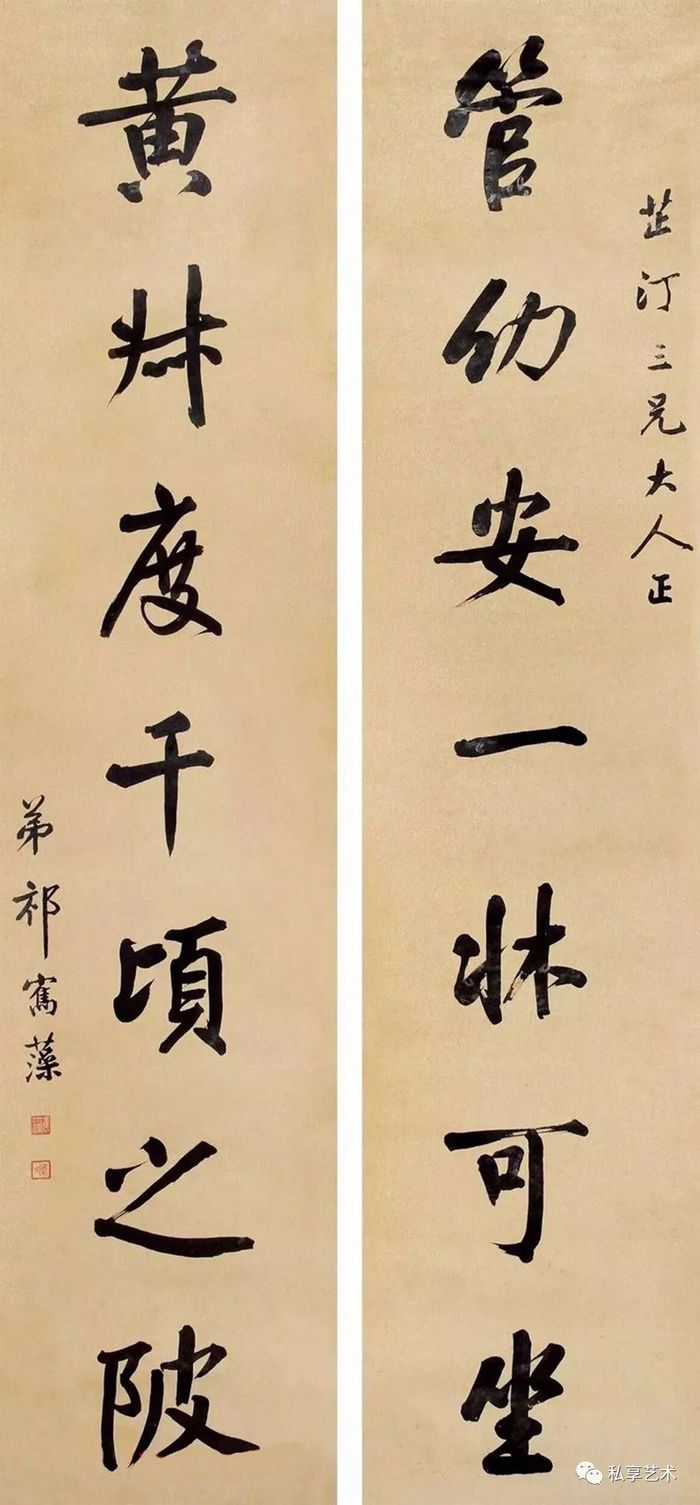 芷汀三兄大人正
管幼安一牀可坐
黄叔度千頃之陂
弟祁寯藻
私享艺术